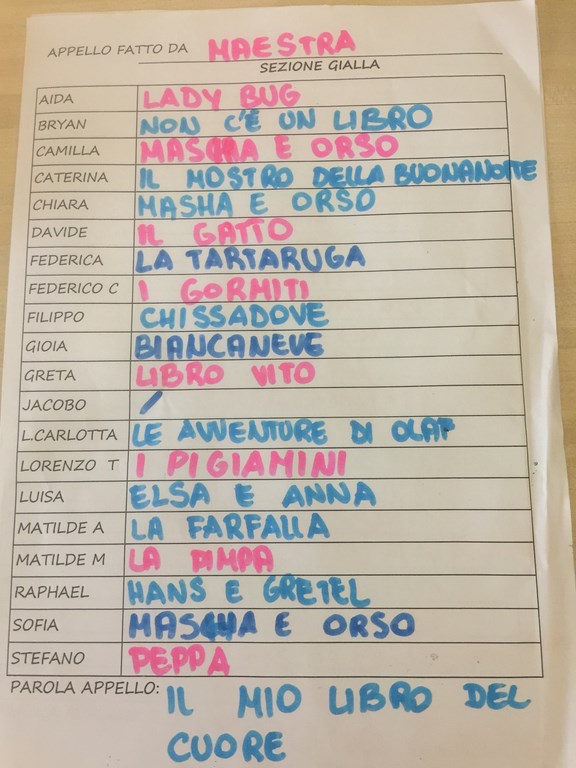 APPELLO FATTO DA MAESTRA
SEZIONE GIALLA
AIDA LADY BUG
BRYAN NON C'È UN LIBRO
CAMILLA MASHA E ORSO
CATERINA IL MOSTRO DELLA BUONANOTTE
CHIARA MASHA E ORSO
DAVIDE IL GATTO
FEDERICA LA TARTARUGA
FEDERICO C I GORMITI
FILIPPO CHISSADOVE
GIOIA BIANCANEVE
GRETA LIBRO VITO
JACOBO /
L.CARLOTTA LE AVVENTURE DI OLAF
LORENZO T I PIGIAMINI
LUISA ELSA E ANNA
MATILDE A LA FARFALLA
MATILDE M LA PIMPA
RAPHAEL HANS E GRETEL
SOFIA MASHA E ORSO
STEFANO PEPPA
PAROLA APPELLO: IL MIO LIBRO DEL
CUORE